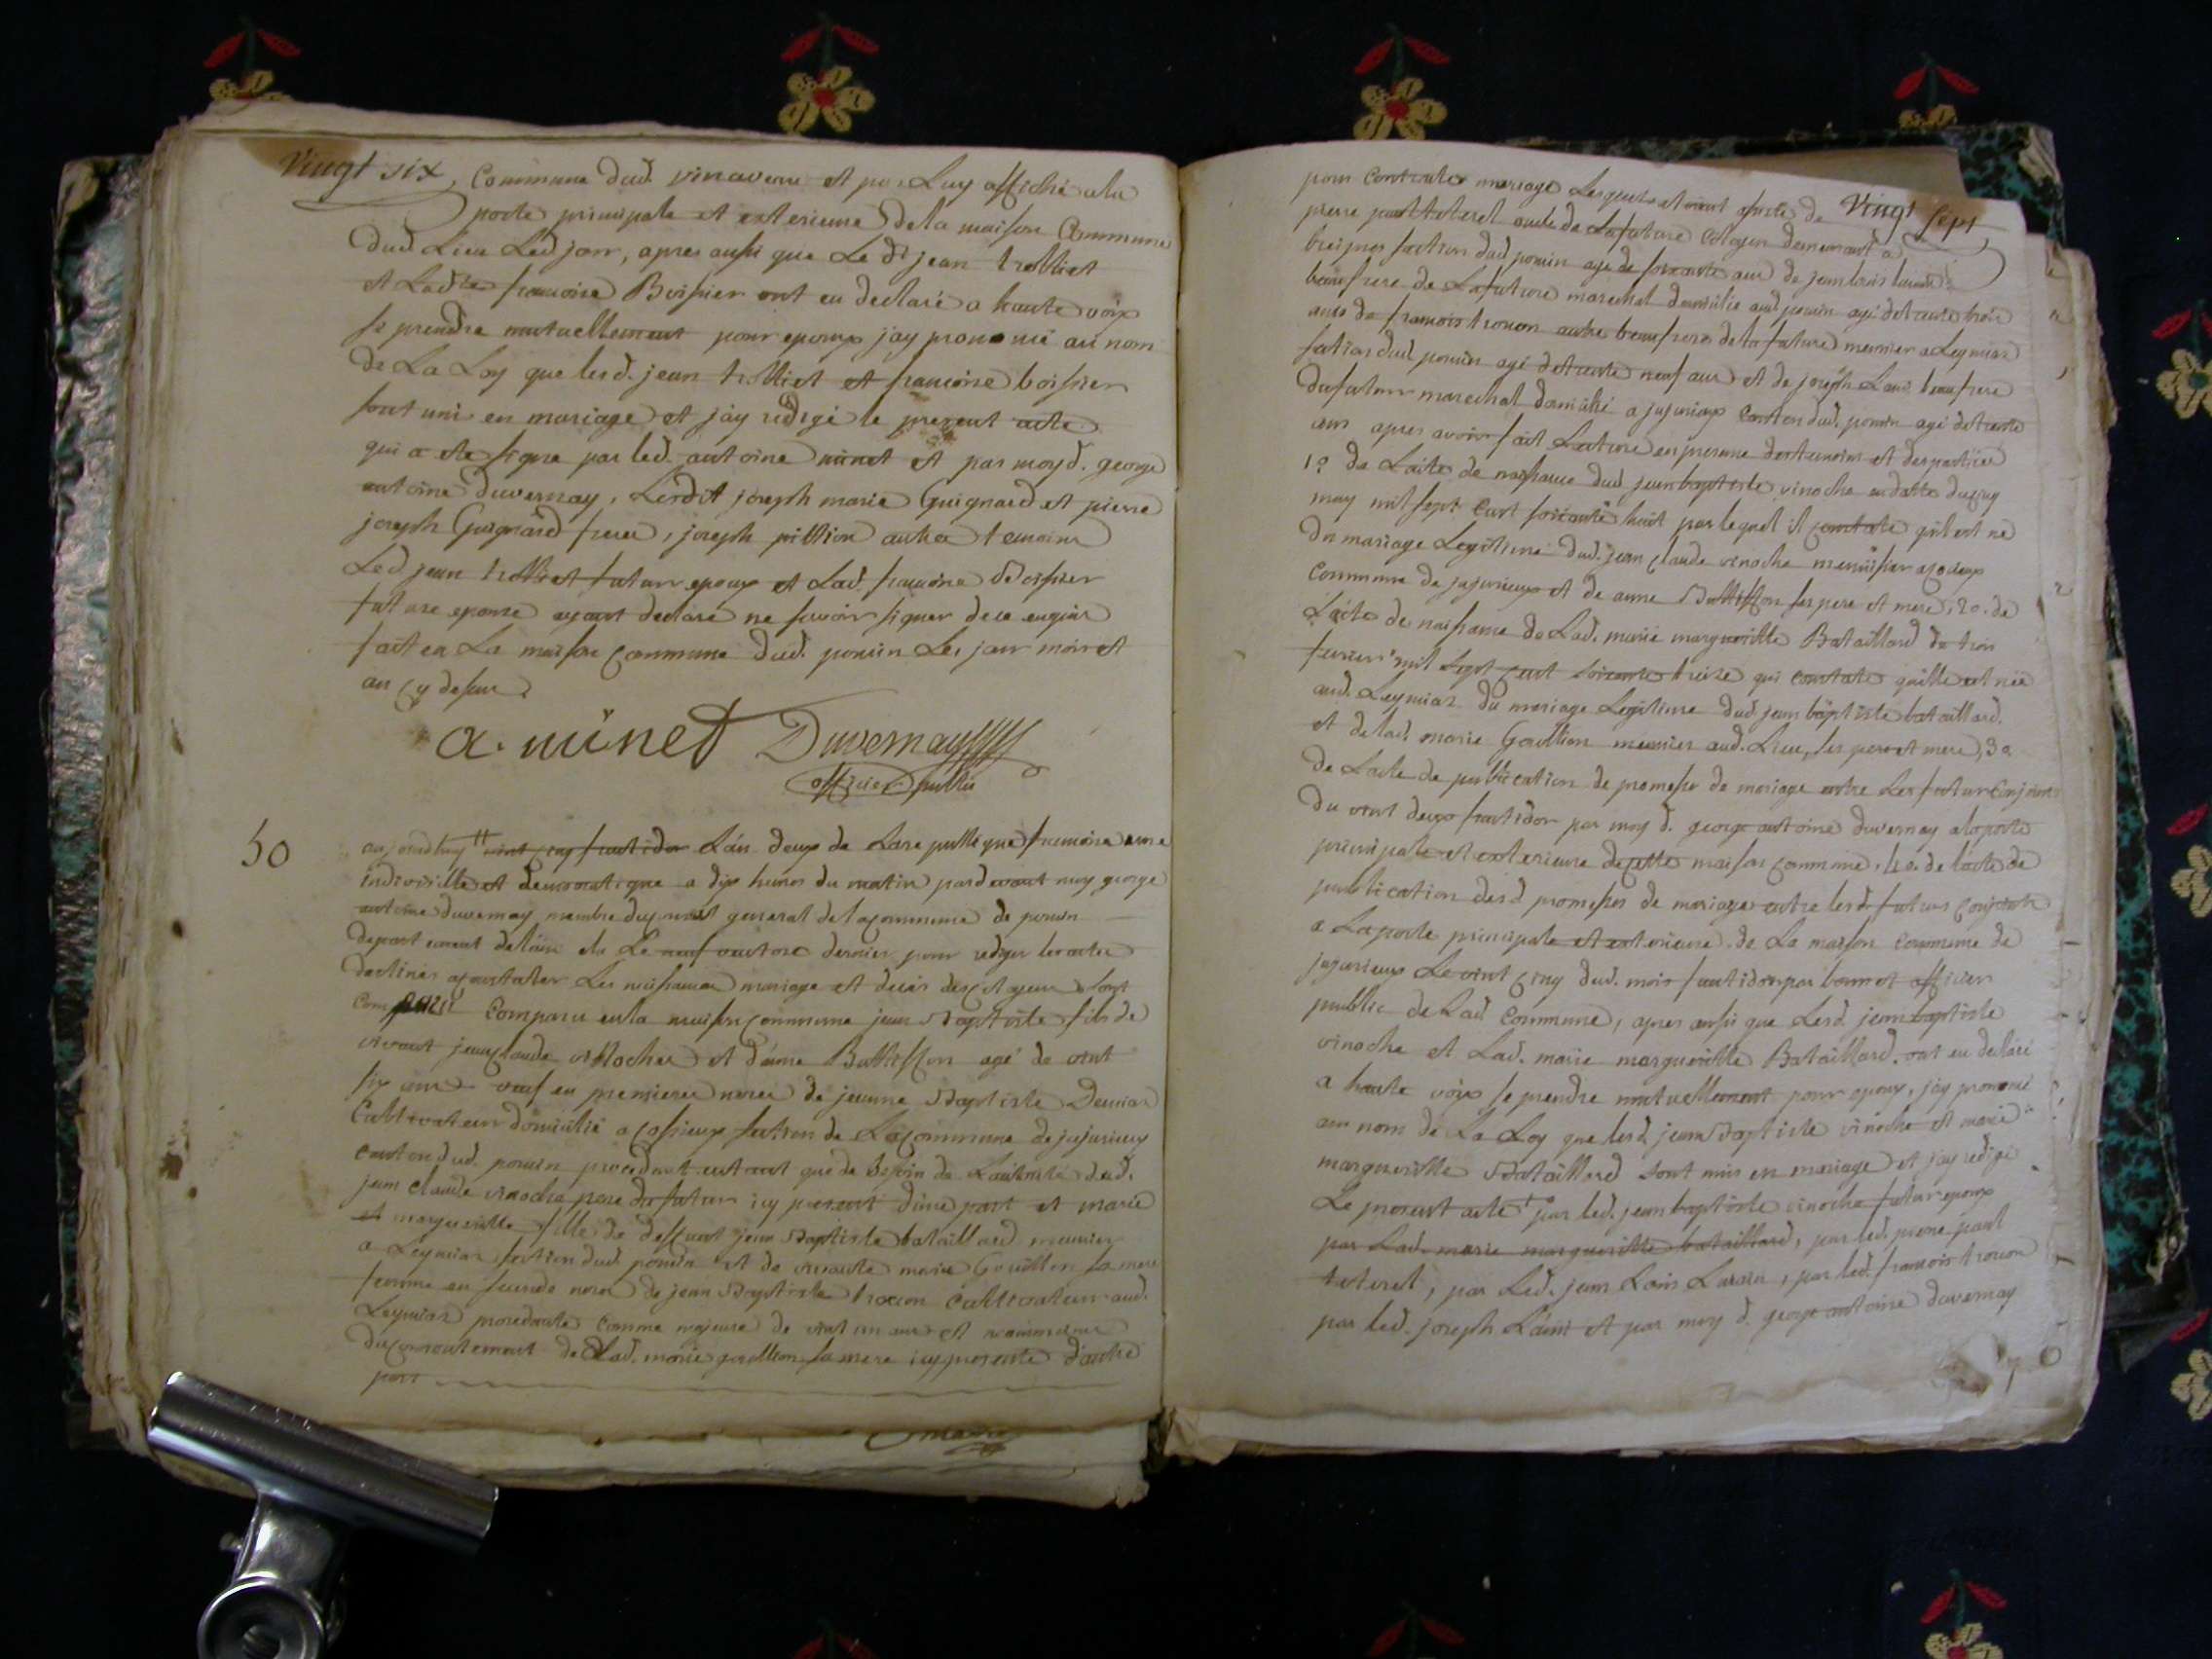 Vingt six
Commune dud. vinaveau et par Luy affiché a la
porte principale et exterieure de la maison Commune
dud Lieu Led jour, apres aussi que Le dt jean trolliet
et Ladte francoise Boissier ont eu declaré a haute voix
se prendre mutuellement pour epoux jay prononcé au nom
de La Loy que lesd. jean trolliet et francoise boissier
sont unis en mariage et jay redigé le present acte
qui a ete signe par led. antoine ninet et par moy d. george
antoine duvernay, Lesdit joseph marie Guignard et pierre
joseph Guignard freres, joseph pittion autres temoins
Led jean trolliet futur epoux et Lad. francoise Boissier
future epouse ayant declaré ne scavoir signer de ce enquis
fait en La maison commune dud. poncin Les jour mois et
an cy dessus
a. ninet Duvernay
officier public
50
aujourdhuy vint cinq fructidor Lan deux de La republique francoise une
indivisible et democratique a dix heures du matin pardevant moy george
antoine duvernay membre du conseil general de la commune de poncin
departement de lain elu Le neuf ventose dernier pour rediger les actes
destinés a constater Les naissances mariage et deces des citoyens sont
comparu en la maison commune jean Baptiste fils de
vivant jean claude vinoche et danne Buttisson agé de vint
six ans veuf en premieres noces de jeanne Baptiste
Cultivateur domicilié a cossieux section de La commune de jujurieux
canton dud. poncin procedant entant que de besoin de Lautorité dud.
jean claude vinoche pere du futur icy present dune part et marie
et margueritte fille de deffunt jean Baptiste bataillard meunier
a Leymiaz section dud poncin et de vivante marie Goullion sa mere
femme en seconde noces de jean Baptiste trocon cultivateur aud.
Leymiaz procedante comme majeure de vint un ans et neanmoins
du consentement de Lad. marie goullion sa mere icy presente dautre
part
Vingt sept
pour contracter mariage Lesquels etoient assisté de
pierre paul teterel oncle de La future citoyen demeurant a
breignes section dud poncin agé de soixante ans de jean louis
beaufrere de La future marechal domicilié aud poncin agé de trente trois
ans de francois trocon autre beaufrere de la future meunier a Leymiaz
section dud poncin agé de trente neuf ans et de joseph Lami beaufrere
du futur marechal domicilié a jujurieux canton dud. poncin agé de trente
ans apres avoir fait Lecture en presence des temoins et des parties
1o de Lacte de naissance dud jean baptiste vinoche en datte du cinq
may mil sept cent soixante huit par lequel il constate quil est né
du mariage Legitime dud. jean claude vinoche menuisier a cossieux
commune de jujurieux et de anne Buttisson ses pere et mere, 2o. de
Lacte de naissance de Lad. marie margueritte Bataillard de trois
fevrier mil sept cent soixante treize qui constate quelle est née
aud. Leymiaz du mariage Legitime dud. jean baptiste bataillard.
et de lad. marie Goullion meunier aud. Lieu, ses pere et mere, 3o
de Lacte de publication de promesse de mariage entre Les futur conjoints
du vint deux fructidor par moy d. george antoine duvernay a la porte
principale et exterieure de cette maison commune, 4o. de lacte de
publication desd promesses de mariage entre lesd. futurs conjoints
a La porte principale et exterieure de La maison commune de
jujurieux Le vint cinq dud. mois fructidor par bonnet officier
public de Lad Commune, apres aussi que Lesd. jean baptiste
vinoche et Lad. marie margueritte Bataillard. ont eu declaré
a haute voix se prendre mutuellement pour epoux, jay prononcé
au nom de La Loy que lesd. jean Baptiste vinoche et marie
margueritte Bataillard sont unis en mariage et jay redigé
Le present acte par led. jean baptiste vinoche futur epoux
par Lad. marie margueritte bataillard, par led. pierre paul
teterel, par Led. jean Louis , par led. francois trocon
par led. joseph Lami et par moy d. george antoine duvernay